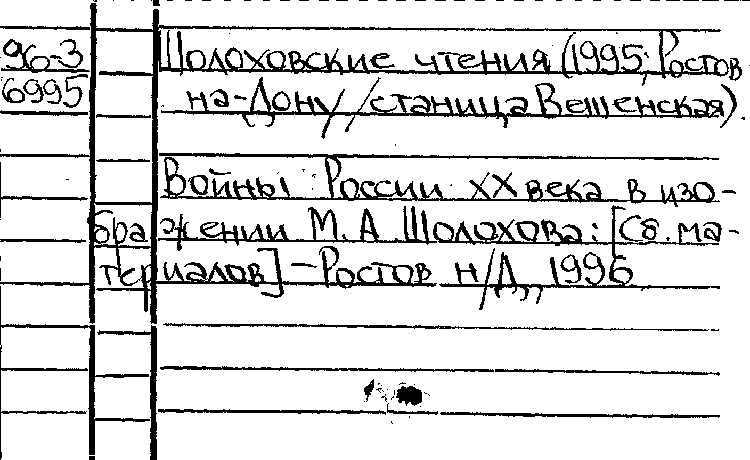 96-3
6995
Шолоховские чтения (1995; Ростов-
на-Дону/станица Вешенская).
Войны России XX века в изо-
бражении М.А. Шолохова: [Сб. ма-
териалов] – Ростов н/Д., 1996